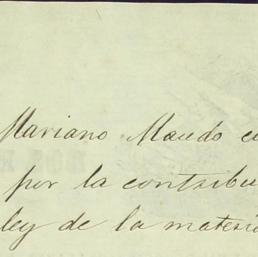 Mariano Maudo
por la contribu
ley de la materia